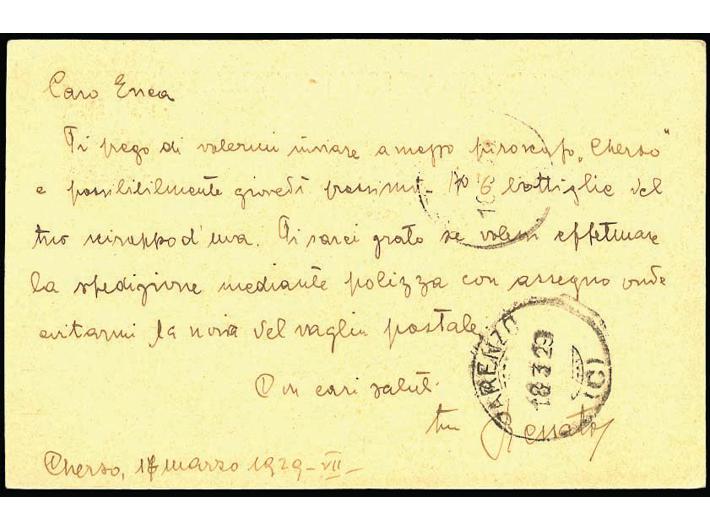 Caro Enea
Ti prego di volermi inviare a mezzo piroscafo „Cherso"
e possibilmente giovedì prossimo - 6 bottiglie del
tuo sciroppo d'uva. Ti sarei grato se volessi effettuare
la spedizione mediante polizza con assegno onde
evitarmi la noia del vaglia postale.
Con cari saluti
tuo Renato
Cherso, 17 marzo 1929 - VII -
PARENZO
18 3 29